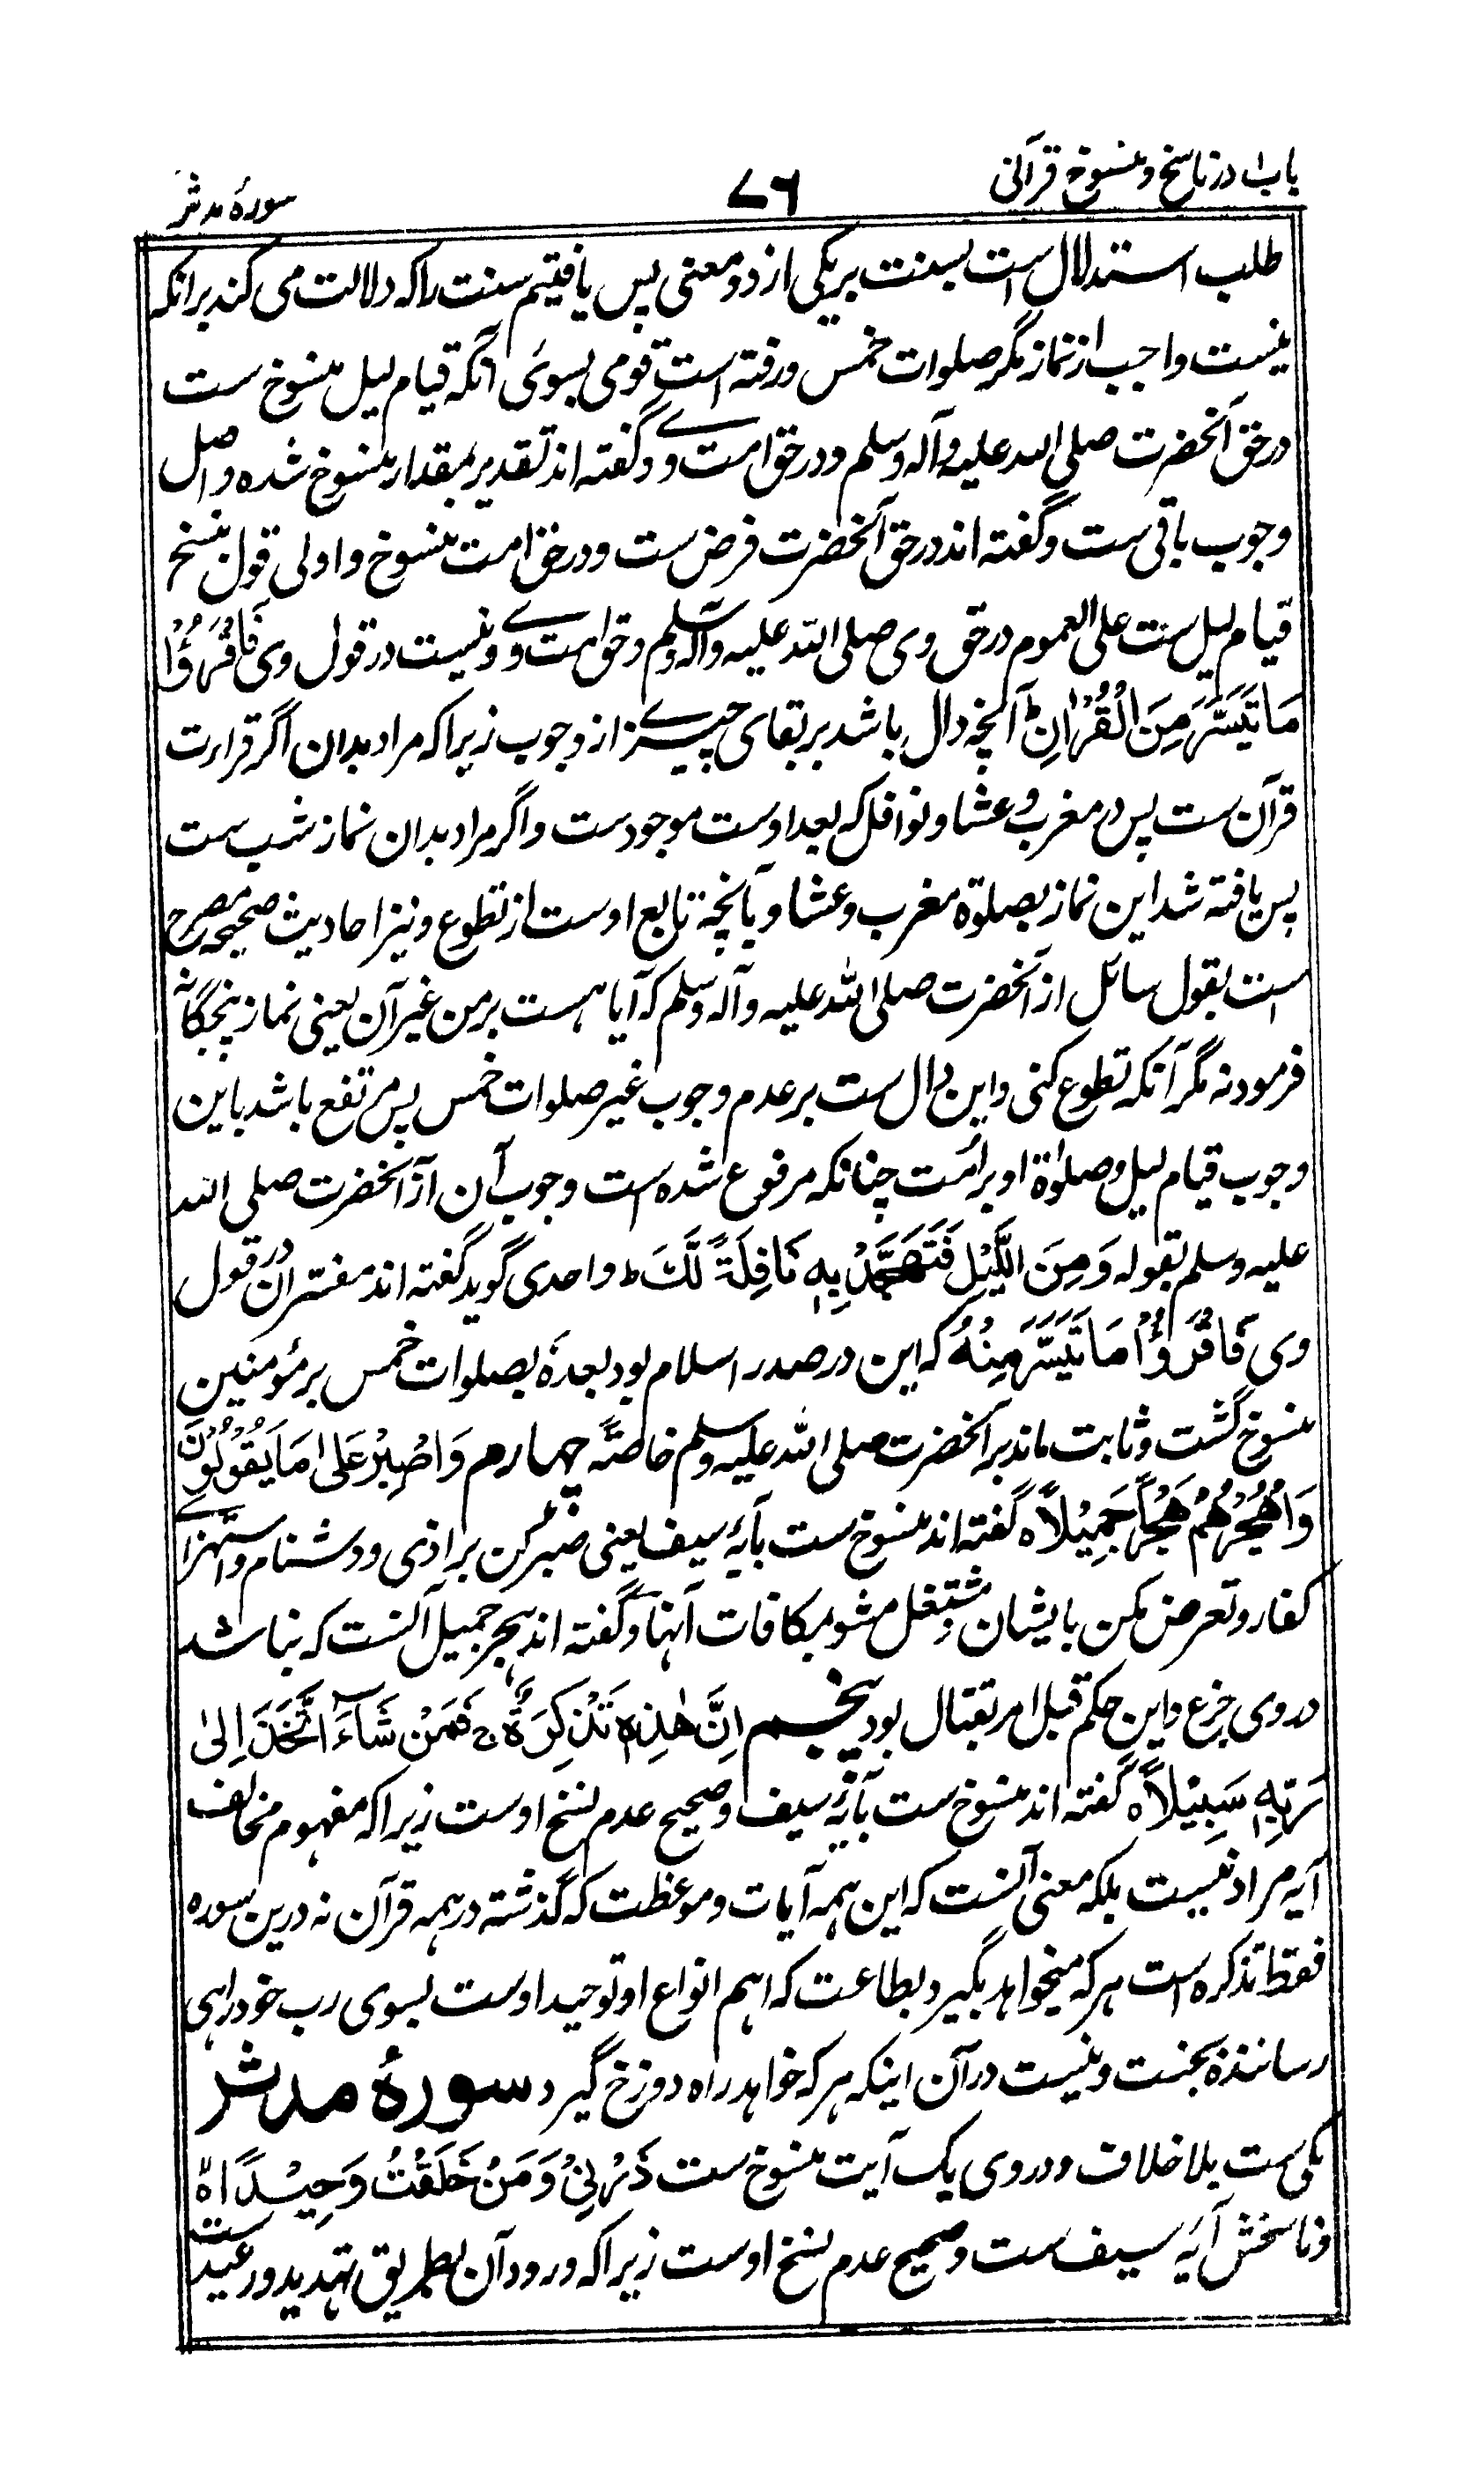 باب ا در ناسخ و منسوخ قرآنی
۷۶
سورهٔ مدثر
طلب استدلال ست بسنت بریکی از دو معنی پس یافتیم سنت را که دلالت می کند برانکه
نیست واجب از نماز مگر صلوات خمس و رفته است قومی بسوئی آنکه قیام لیل منسوخ ست
در حق آنحضرت صلی الله علیه وآله وسلم و در حق امت وے و گفته اند تقدیر بمقدار منسوخ شده و اصل
وجوب باقی ست و گفته اند در حق آنحضرت فرض ست و در حق امت منسوخ و اولی قول بنسخ
قیام لیل ست علی العموم در حق وی صلی الله علیه وآله وسلم و حق امت وے و نیست در قول وی فَاقْرَؤُا
مَا تَيَسَّرَ مِنَ الْقُرْاٰنِ ط آنچه دال باشد بر بقای چیزے از وجوب زیرا که مراد بدان اگر قراءت
قرآن ست پس در مغرب و عشا و نوافل که بعد اوست موجودست و اگر مراد بدان نماز شب ست
پس یافته شد این نماز بصلوة مغرب و عشا و بآنچه تابع اوست از تطوع و نیز احادیث صحیحه مصرح
است بقول سائل از آنحضرت صلی الله علیه وآله وسلم که آیا هست بر من غیر آن یعنی نماز پنجگانه
فرمود نه مگر آنکه تطوع کنی و این دال ست بر عدم وجوب غیر صلوات خمس پس مرتفع باشد باین
وجوب قیام لیل و صلوٰة او بر امت چنانکه مرفوع شده است وجوب آن از آنحضرت صلی الله
علیه وسلم بقوله وَمِنَ الَّيْلِ فَتَهَجَّدْ بِهٖ نَافِلَةً لَّكَ ط واحدی گوید گفته اند مفسران در قول
وی فَاقْرَؤُا مَا تَيَسَّرَ مِنْهُ که این در صدر اسلام بود بعدهٔ بصلوات خمس بر مؤمنین
منسوخ گشت و ثابت ماند بر آنحضرت صلی الله علیه وسلم خاصةً چهارم وَاصْبِرْ عَلٰى مَا يَقُوْلُوْنَ
وَاهْجُرْهُمْ هَجْرًا جَمِيْلًا ه گفته اند منسوخ ست بآیهٔ سیف یعنی صبر کن بر اذی و دشنام و استهزاے
کفار و تعرض مکن بایشان و مشتغل مشو بمکافات آنها و گفته اند هجر جمیل آنست که نباشد
در وی جزع و این حکم قبل امر بقتال بود پنجم اِنَّ هٰذِهٖ تَذْكِرَةٌ ج فَمَنْ شَآءَ اتَّخَذَ اِلٰى
رَبِّهٖ سَبِيْلًا ه گفته اند منسوخ ست بآیهٔ سیف و صحیح عدم نسخ اوست زیرا که مفهوم مخالف
آیه مراد نیست بلکه معنی آنست که این همه آیات و موعظت که گذشته در همه قرآن نه درین سوره
فقط تذکره است هر که میخواهد بگیرد بطاعت که اهم انواع او توحید اوست بسوی رب خود راهی
رساننده بجنت و نیست در آن اینکه هر که خواهد راه دوزخ گیرد سورهٔ مدثر
مکی ست بلا خلاف و در وی یک آیت منسوخ ست ذَرْنِيْ وَمَنْ خَلَقْتُ وَحِيْدًا ه
و ناسخش آیهٔ سیف ست و صحیح عدم نسخ اوست زیرا که ورود آن بطریق تهدید و وعید ست